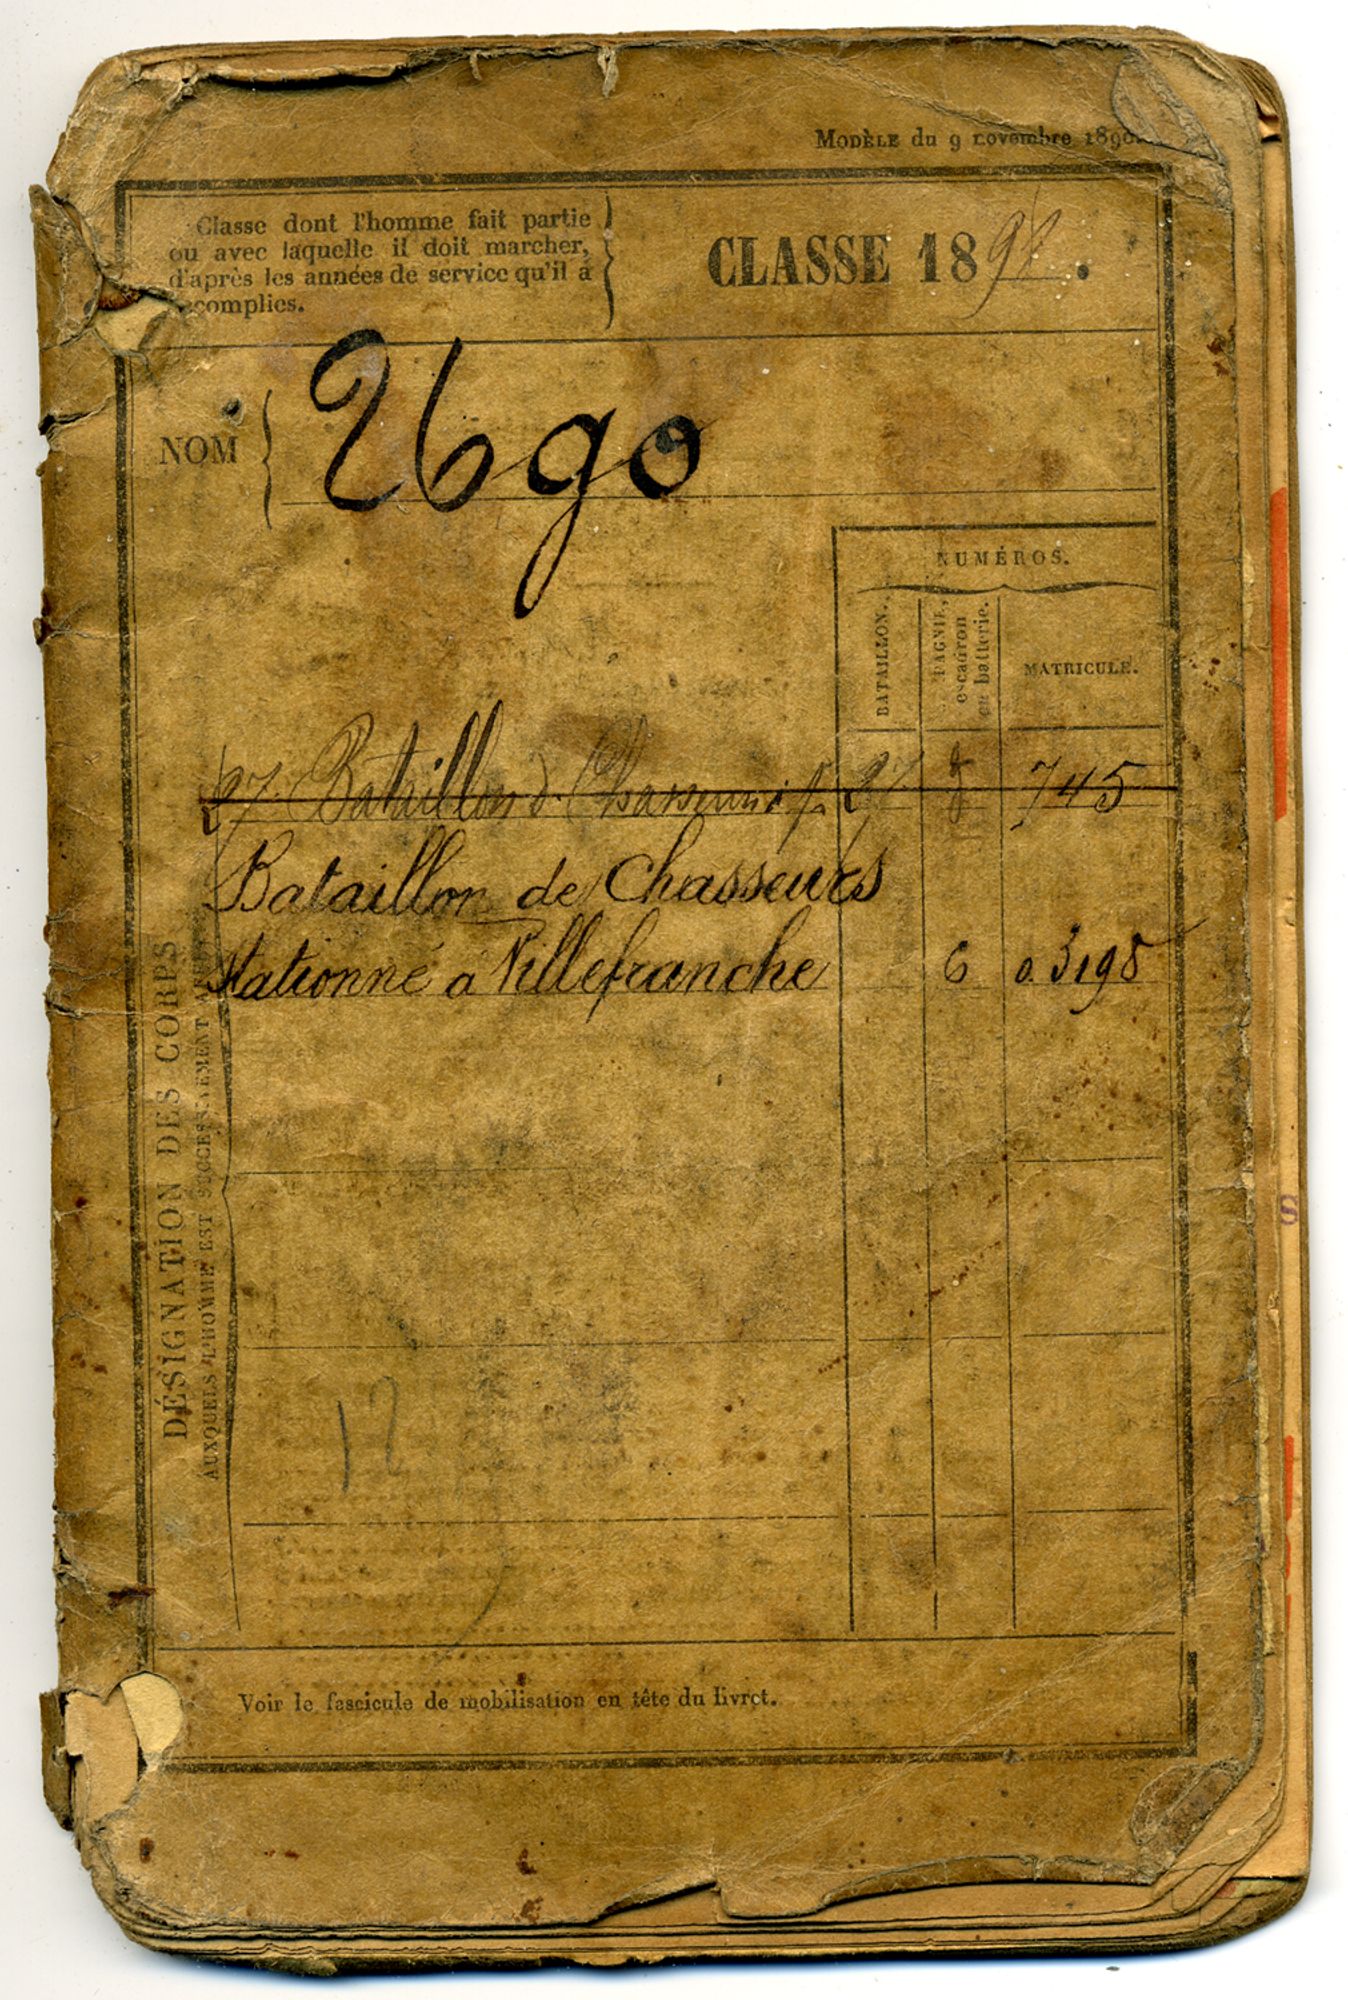 MODÈLE du 9 novembre 1890.
Classe dont l'homme fait partie
ou avec laquelle il doit marcher,
d'après les années de service qu'il a
accomplies.
CLASSE 1891.
NOM
Ugo
NUMÉROS.
BATAILLON.
PAGNIE,
escadron
ou batterie.
MATRICULE.
DÉSIGNATION DES CORPS
AUXQUELS L'HOMME EST SUCCESSIVEMENT
27 Bataillon d. Chasseurs 27 745
Bataillon de Chasseurs
stationné à Villefranche 6 0.3198
12
Voir le fascicule de mobilisation en tête du livret.
S